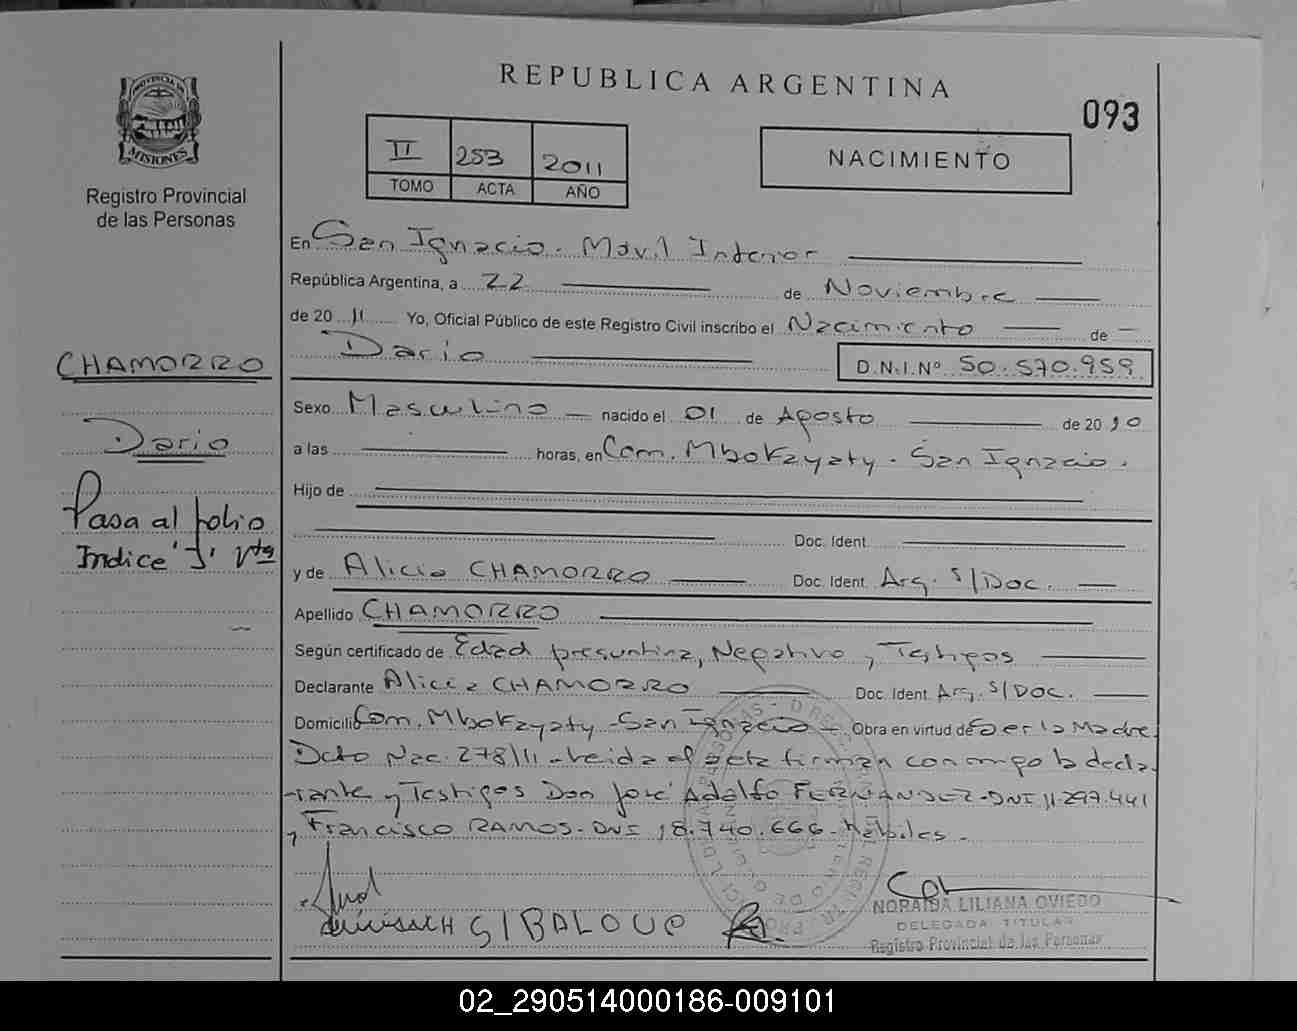 REPUBLICA ARGENTINA
093
PROVINCIA DE
MISIONES
Registro Provincial
de las Personas
II 253 2011
TOMO ACTA AÑO
NACIMIENTO
En San Ignacio. Movil Interior
República Argentina, a 22 de Noviembre
de 20 11 Yo, Oficial Público de este Registro Civil inscribo el Nacimiento de
Dario D.N.I.Nº 50.570.959
CHAMORRO
Dario
Pasa al folio
Indice "J" Vta
Sexo Masculino nacido el 01 de Agosto de 20 10
a las horas, en Com. Mbokayaty. San Ignacio.
Hijo de
Doc. Ident.
y de Alicia CHAMORRO Doc. Ident. Arg. S/Doc.
Apellido CHAMORRO
Según certificado de Edad presuntiva, Negativo y Testigos
Declarante Alicia CHAMORRO Doc. Ident. Arg. S/Doc.
Domicilio Com. Mbokayaty - San Ignacio Obra en virtud de Ser la Madre.
Dcto Nac. 278/11 - Leida el acta firman conmigo la decla-
rante y Testigos Don José Adolfo FERNANDEZ - DNI 11.297.441
y Francisco RAMOS - DNI 18.740.666 - Habiles -
NORAIDA LILIANA OVIEDO
DELEGADA TITULAR
Registro Provincial de las Personas
02_290514000186-009101